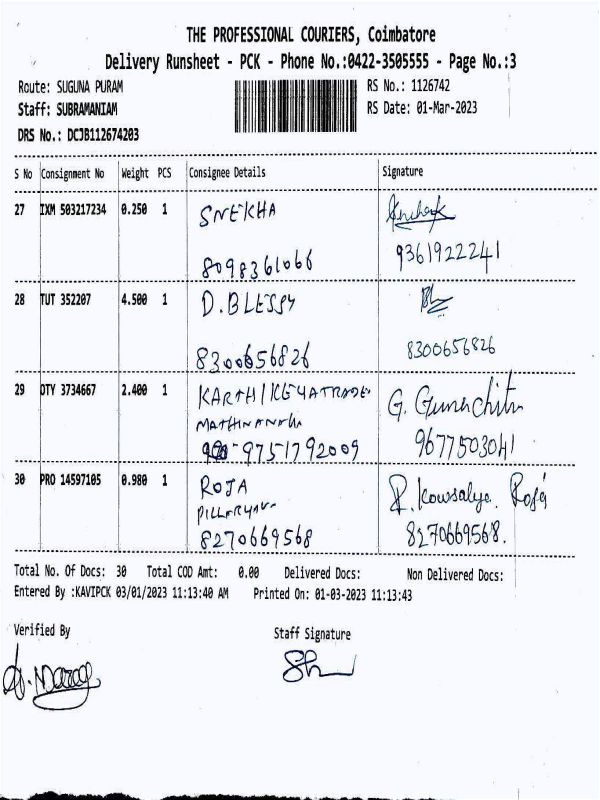 THE PROFESSIONAL COURIERS, Coimbatore
Delivery Runsheet - PCK - Phone No.:0422-3505555 - Page No.:3
Route: SUGUNA PURAM RS No.: 1126742
Staff: SUBRAMANIAM RS Date: 01-Mar-2023
DRS No.: DCJB112674203
S No Consignment No Weight PCS Consignee Details Signature
27 IXM 503217234 0.250 1 SNEKHA
8098361066 9361922241
28 TUT 352207 4.500 1 D.BLESSY
8300656826 8300656826
29 OTY 3734667 2.400 1 KARTHIKEYATRADE G. Gunachitra
9751792009 9677503041
30 PRO 14597105 0.980 1 ROJA R. Kowsalya Roja
8270669568 8270669568.
Total No. Of Docs: 30 Total COD Amt: 0.00 Delivered Docs: Non Delivered Docs:
Entered By :KAVIPCK 03/01/2023 11:13:40 AM Printed On: 01-03-2023 11:13:43
Verified By Staff Signature